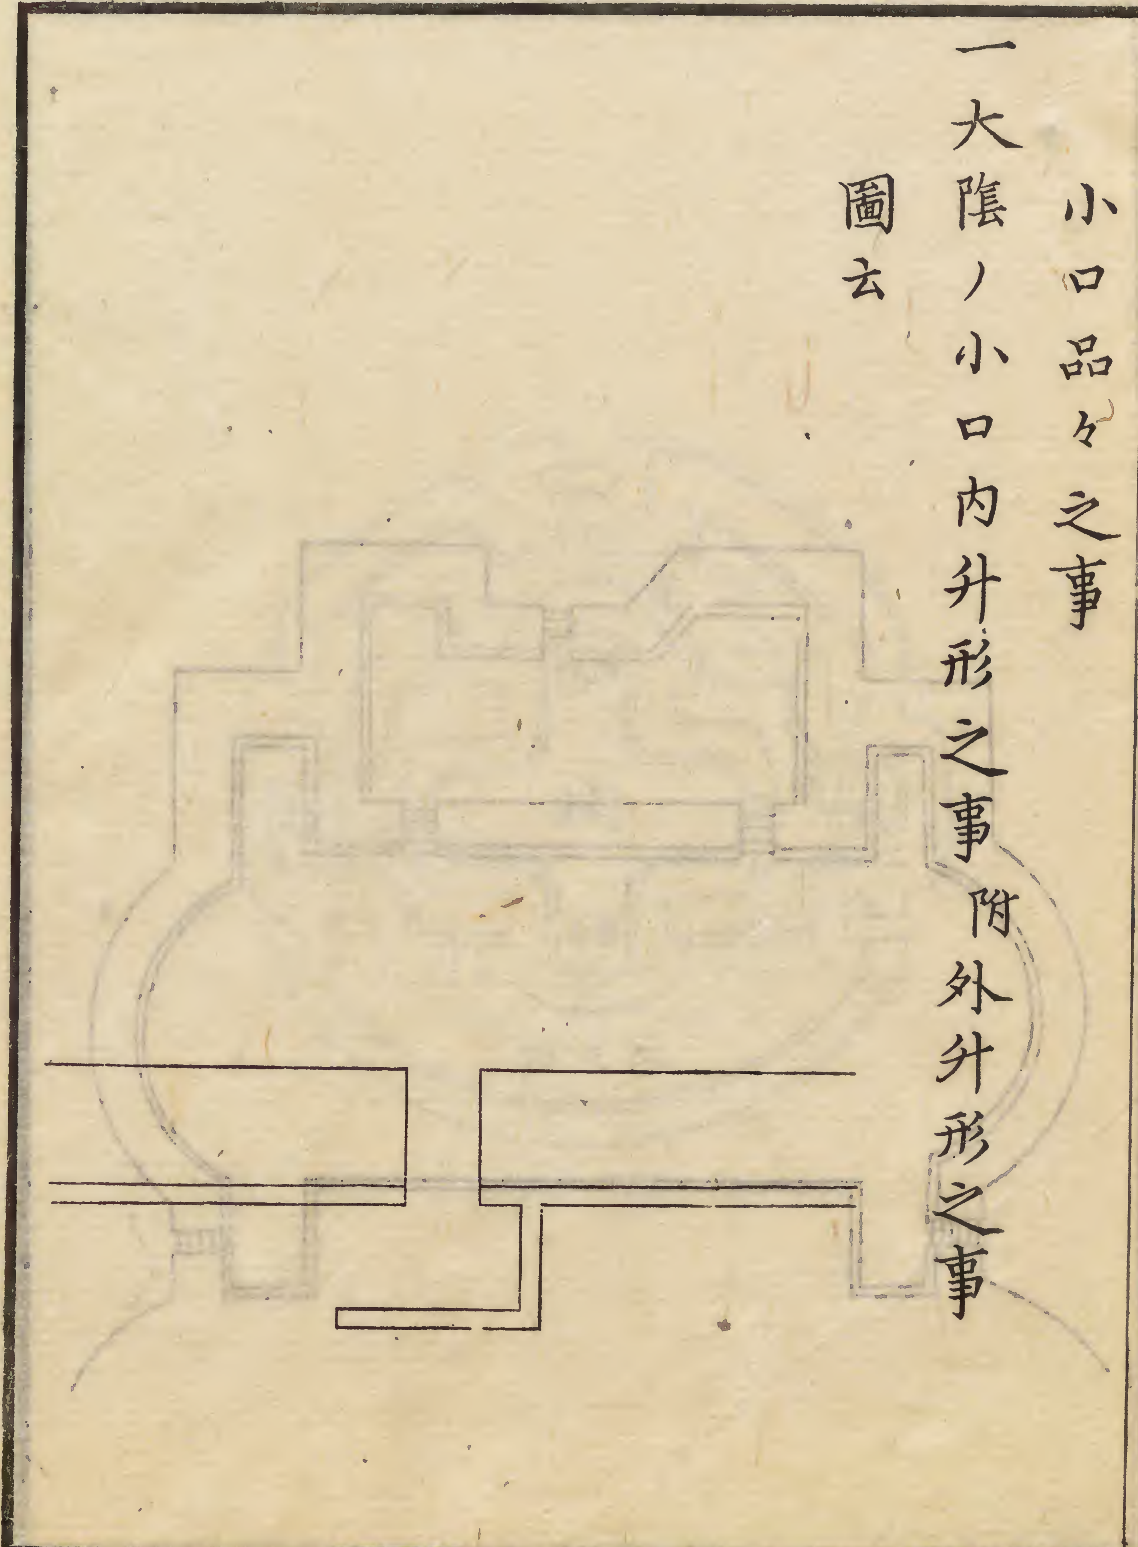 小口品々之事
一大陰ノ小口内升形之事 附外升形之事
圖云